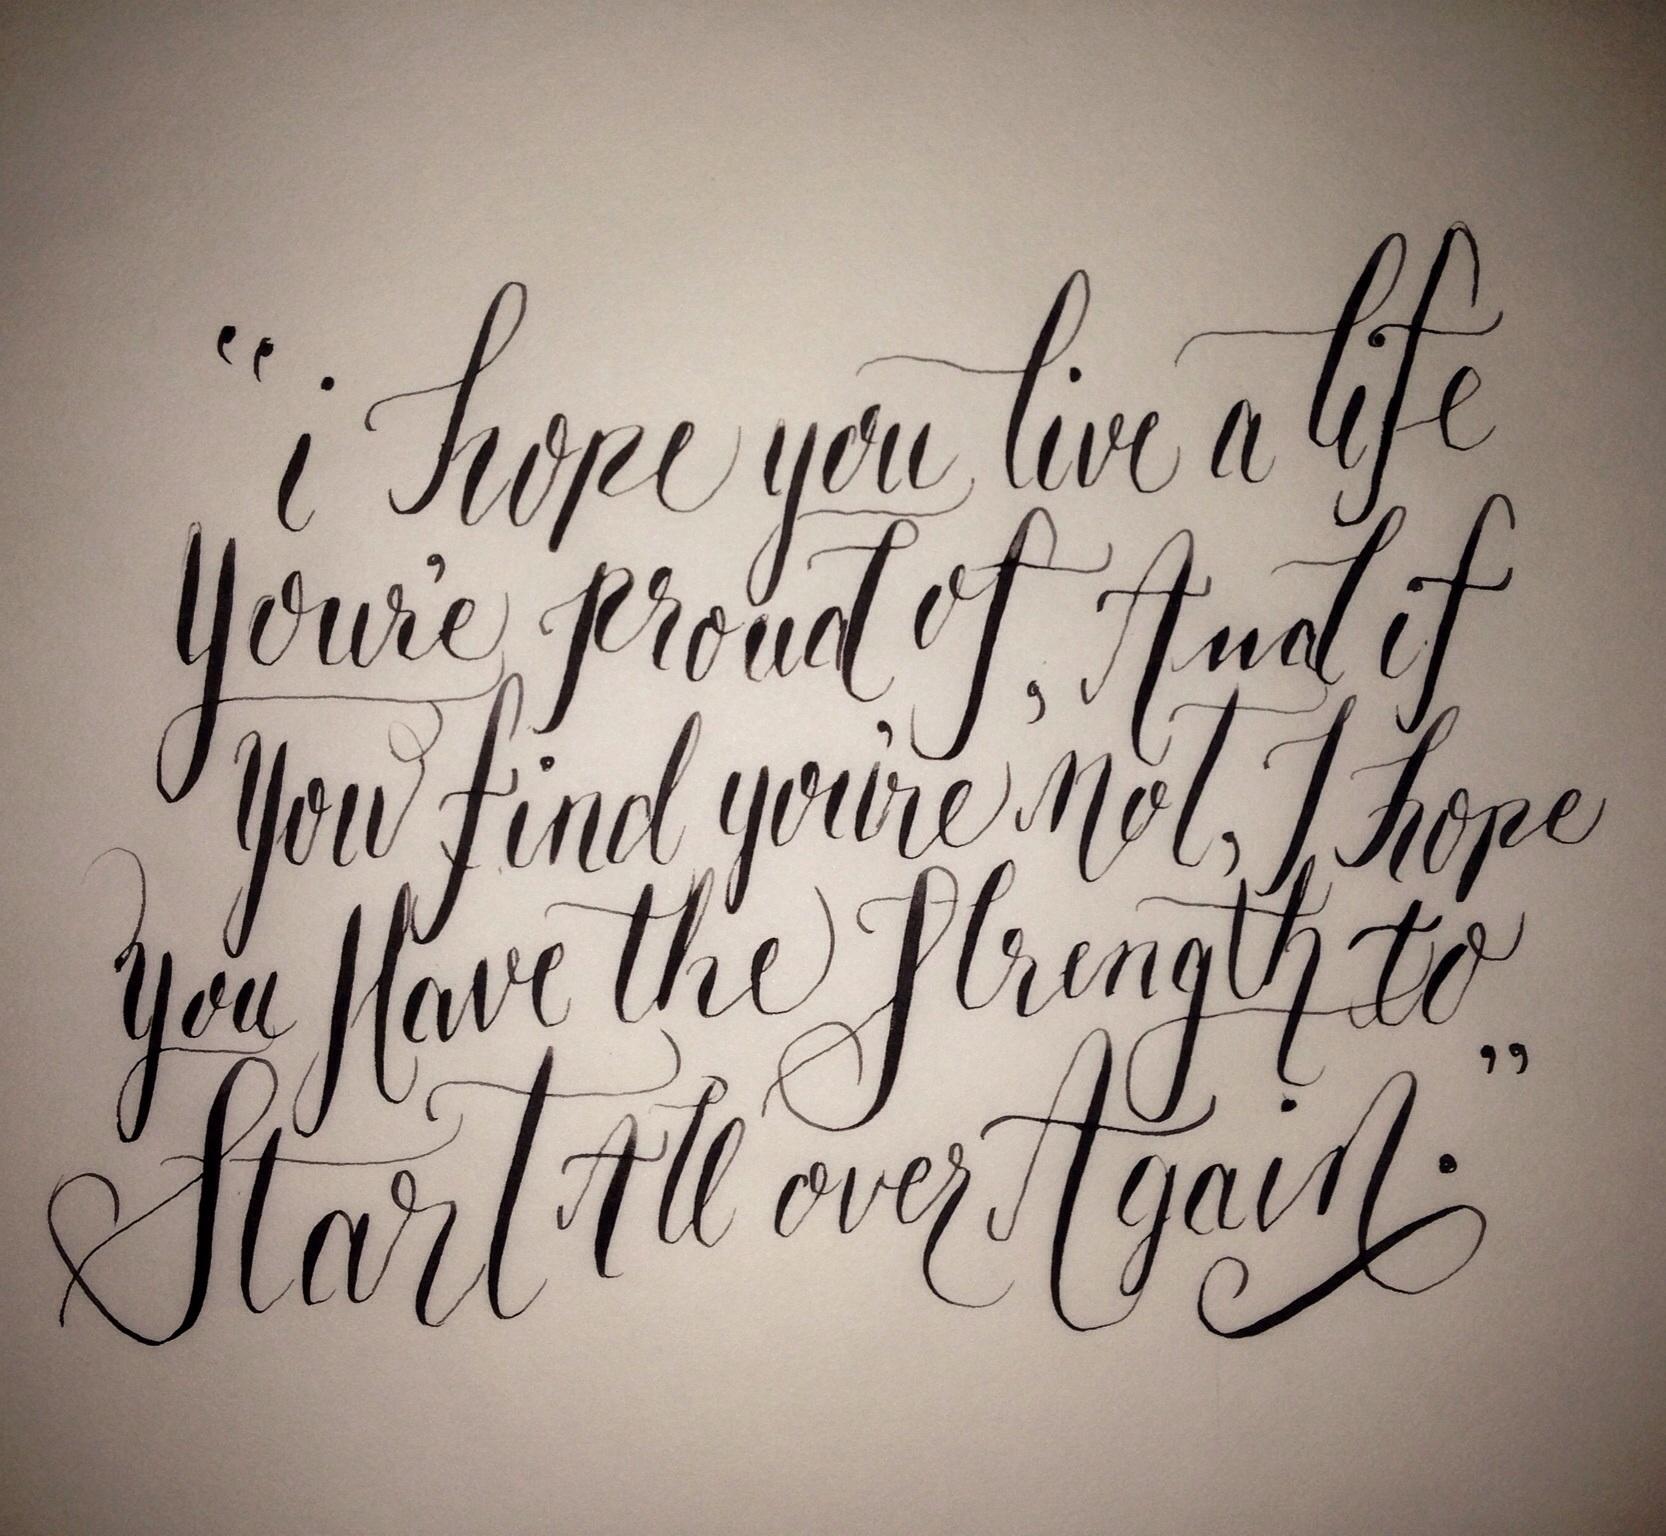 “i hope you live a life
you're proud of, And if
you find you're not, I hope
you Have the Strength to
Start All over Again.”